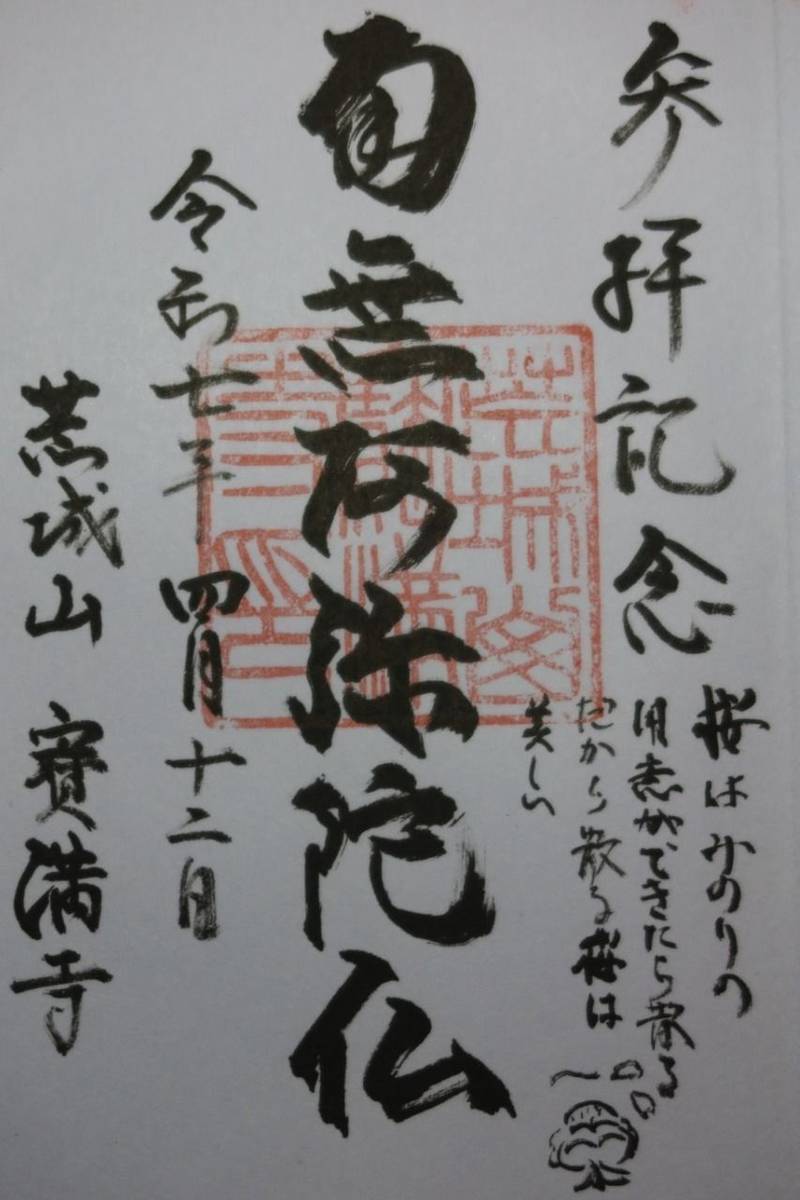 参拝記念
桜はみのりの
用意ができたら散る
だから散る桜は
美しい
南無阿弥陀仏
令和七年四月十二日
荒城山 寳満寺